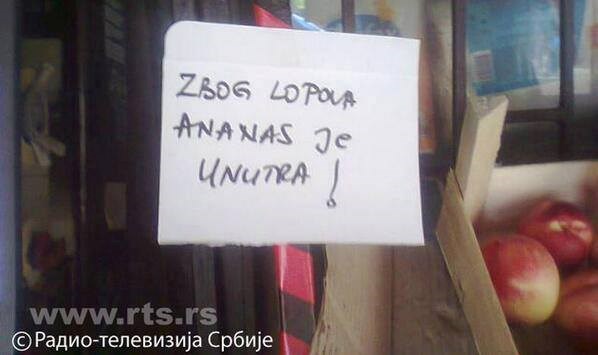 ZBOG LOPOVA
ANANAS JE
UNUTRA!
www.rts.rs
©Радио-телевизија Србије